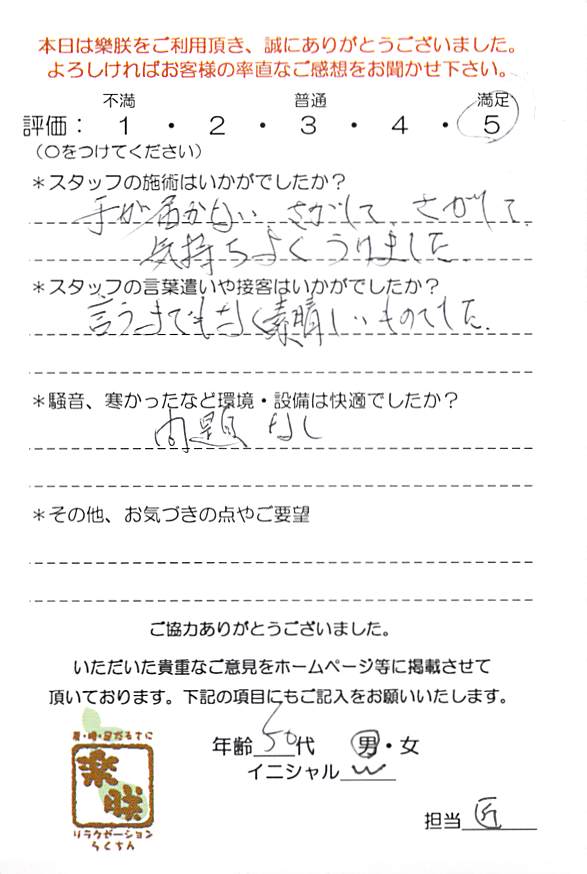 本日は樂朕をご利用頂き、誠にありがとうございました。
よろしければお客様の率直なご感想をお聞かせ下さい。
不満 普通 満足
評価： 1 ・ 2 ・ 3 ・ 4 ・ 5
（○をつけてください）
＊スタッフの施術はいかがでしたか？
手が届かない さがして、さがして、
気持ちよくうけました
＊スタッフの言葉遣いや接客はいかがでしたか？
言うまでもなく素晴しいものでした.
＊騒音、寒かったなど環境・設備は快適でしたか？
問題なし
＊その他、お気づきの点やご要望
ご協力ありがとうございました。
いただいた貴重なご意見をホームページ等に掲載させて
頂いております。下記の項目にもご記入をお願いいたします。
年齢 50 代 男・女
イニシャル W
担当 匠
肩・腰・足がるてに
楽朕
リラクゼーション
らくちん